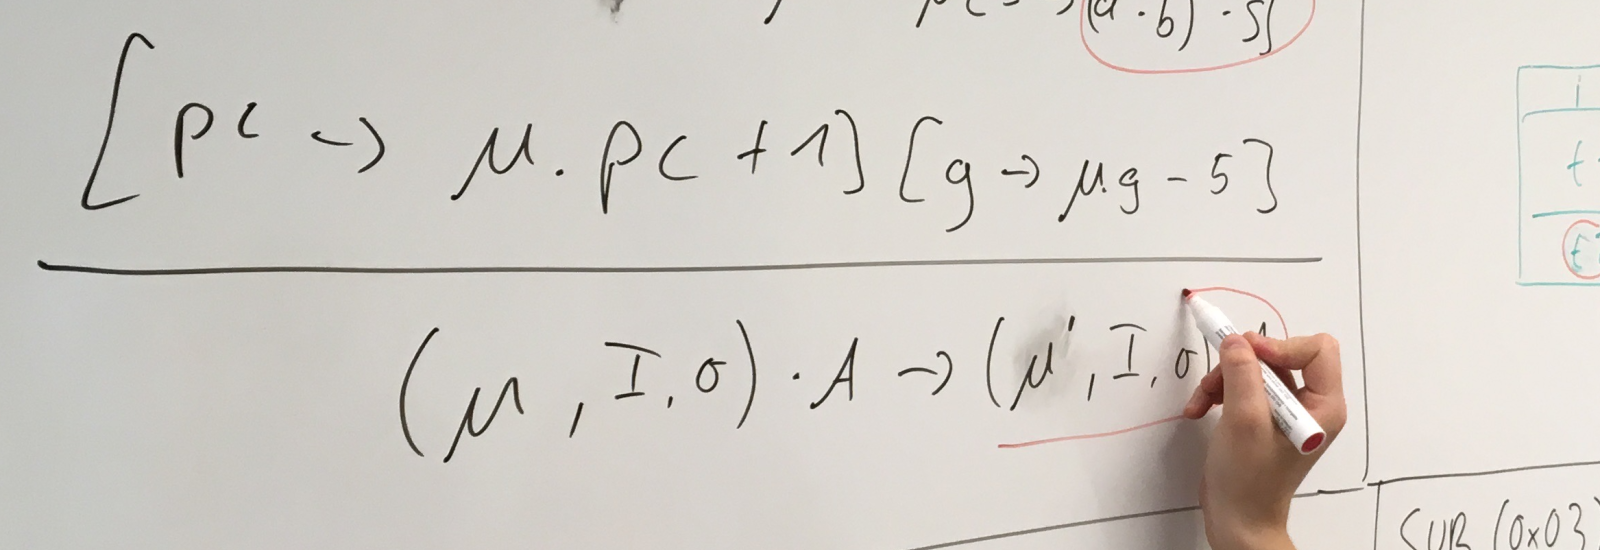 (a · b) · s]
[pc → μ.pc + 1] [g → μ.g - 5]
(μ, I, σ) · A → (μ', I, σ)
i
t
SUB (0x03)